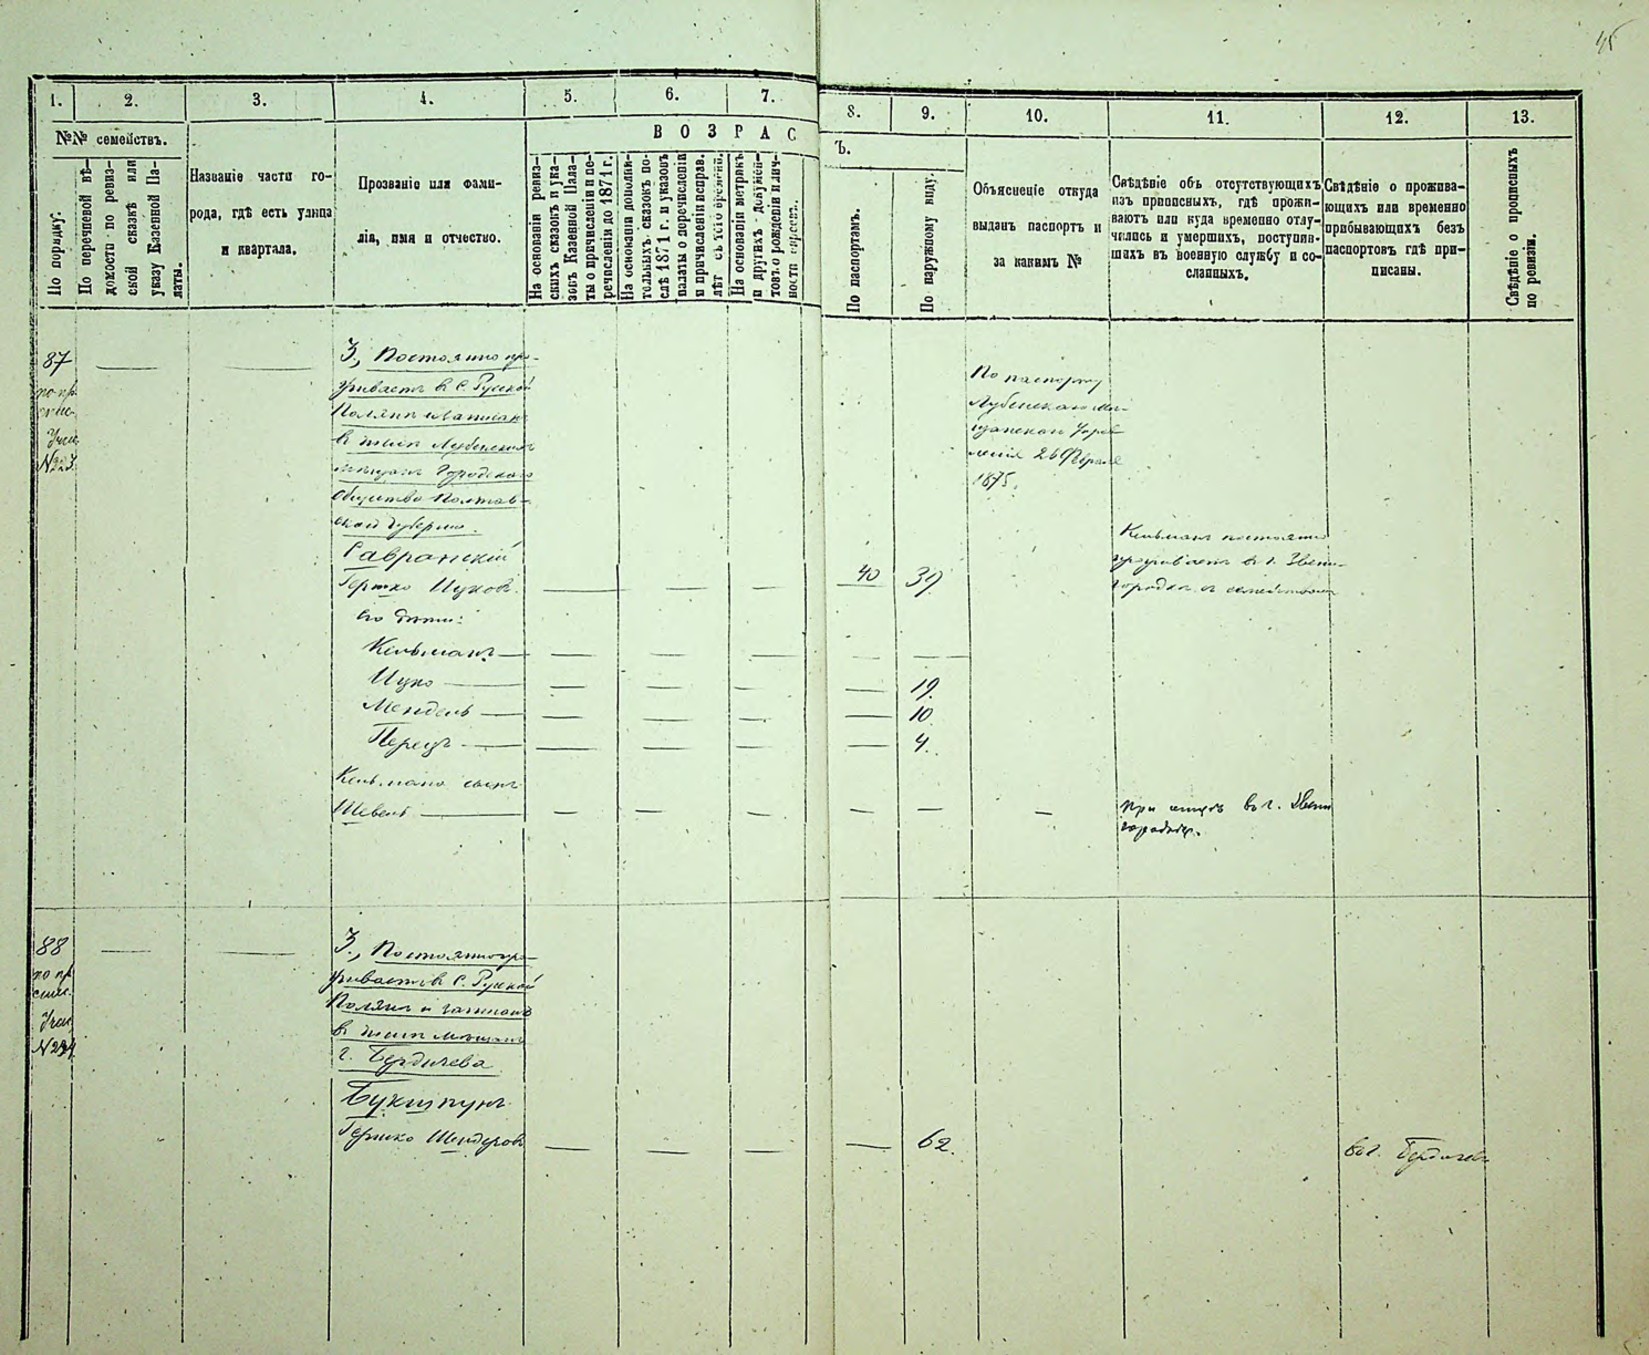 45
1. 2. 3. 4. 5. 6. 7. 8. 9. 10. 11. 12. 13.
№№ семействъ.
По порядку.
По перечневой вѣ-
домости по ревиз-
ской сказкѣ или
указу Казенной Па-
латы.
Названіе части го-
рода, гдѣ есть улица
и квартала.
Прозваніе или фами-
лія, имя и отчество.
ВОЗРАС
Ъ.
На основаніи ревиз-
скихъ сказокъ и ука-
зовъ Казенной Пала-
ты о причисленіи и пе-
речисленіи до 1871 г.
На основаніи дополни-
тельныхъ сказокъ по-
слѣ 1871 г. и указовъ
палаты о перечисленіи
и причисленіи исправ.
лѣт съ того времени.
На основаніи метрикъ
и другихъ докумен-
товъ о рожденіи и лич-
ности евреевъ.
По паспортамъ.
По наружному виду.
Объясненіе откуда
выданъ паспортъ и
за какимъ №
Свѣдѣніе объ отсутствующихъ
изъ приписныхъ, гдѣ прожи-
ваютъ или куда временно отлу-
чились и умершихъ, поступив-
шихъ въ военную службу и со-
сланныхъ.
Свѣдѣніе о прожива-
ющихъ или временно
прибывающихъ безъ
паспортовъ гдѣ при-
писаны.
Свѣдѣніе о прописныхъ
по ревизіи.
87
N223
3., Постоянно про-
живаетъ в С. Русской
Полянѣ и записанъ
в числѣ Лубенскихъ
мѣщанъ Городскаго
Общества Полтав-
ской Губерніи.
Савранскій
Гершко Ицковъ. 40 39
его дѣти:
Кельманъ
Ицко 19.
Мендель 10
Перецъ 4.
Кельмана сынъ
Шевель
По паспорту
Лубенскаго Мѣ-
щанскаго Управ-
ленія 26 Февраля
1875.
Кельманъ постоянно
проживаетъ в г. Звени-
городкѣ съ семействомъ
При отцѣ в г. Звени
городкѣ.
88
N224
3., Постоянно про-
живаетъ в С. Русской
Полянѣ и записанъ
в числѣ мѣщанъ
г. Бердичева
Букшпунъ
Гершко Шендеровъ 62.
В г. Бердичевѣ